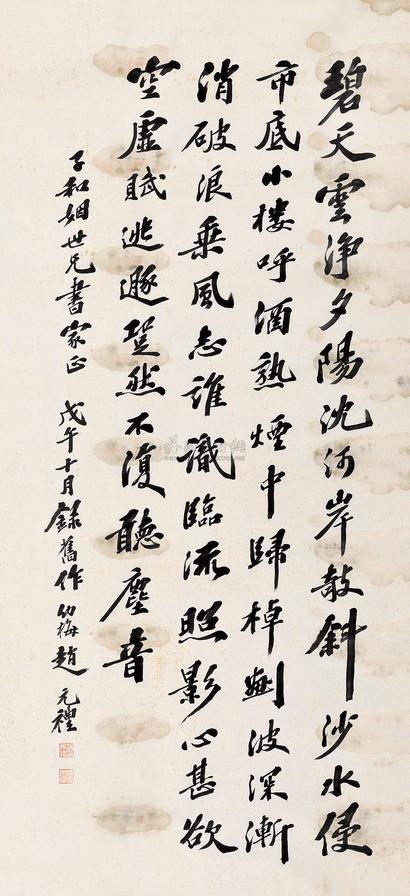 碧天雲淨夕陽沈河岸敧斜沙水侵
市底小樓呼酒熟煙中歸棹劃波深漸
消破浪乘風志誰識臨流照影心甚欲
空虛賦逃遯跫然不復聽塵音
子和姻世兄書家正 戊午十月錄舊作 幼梅趙元禮